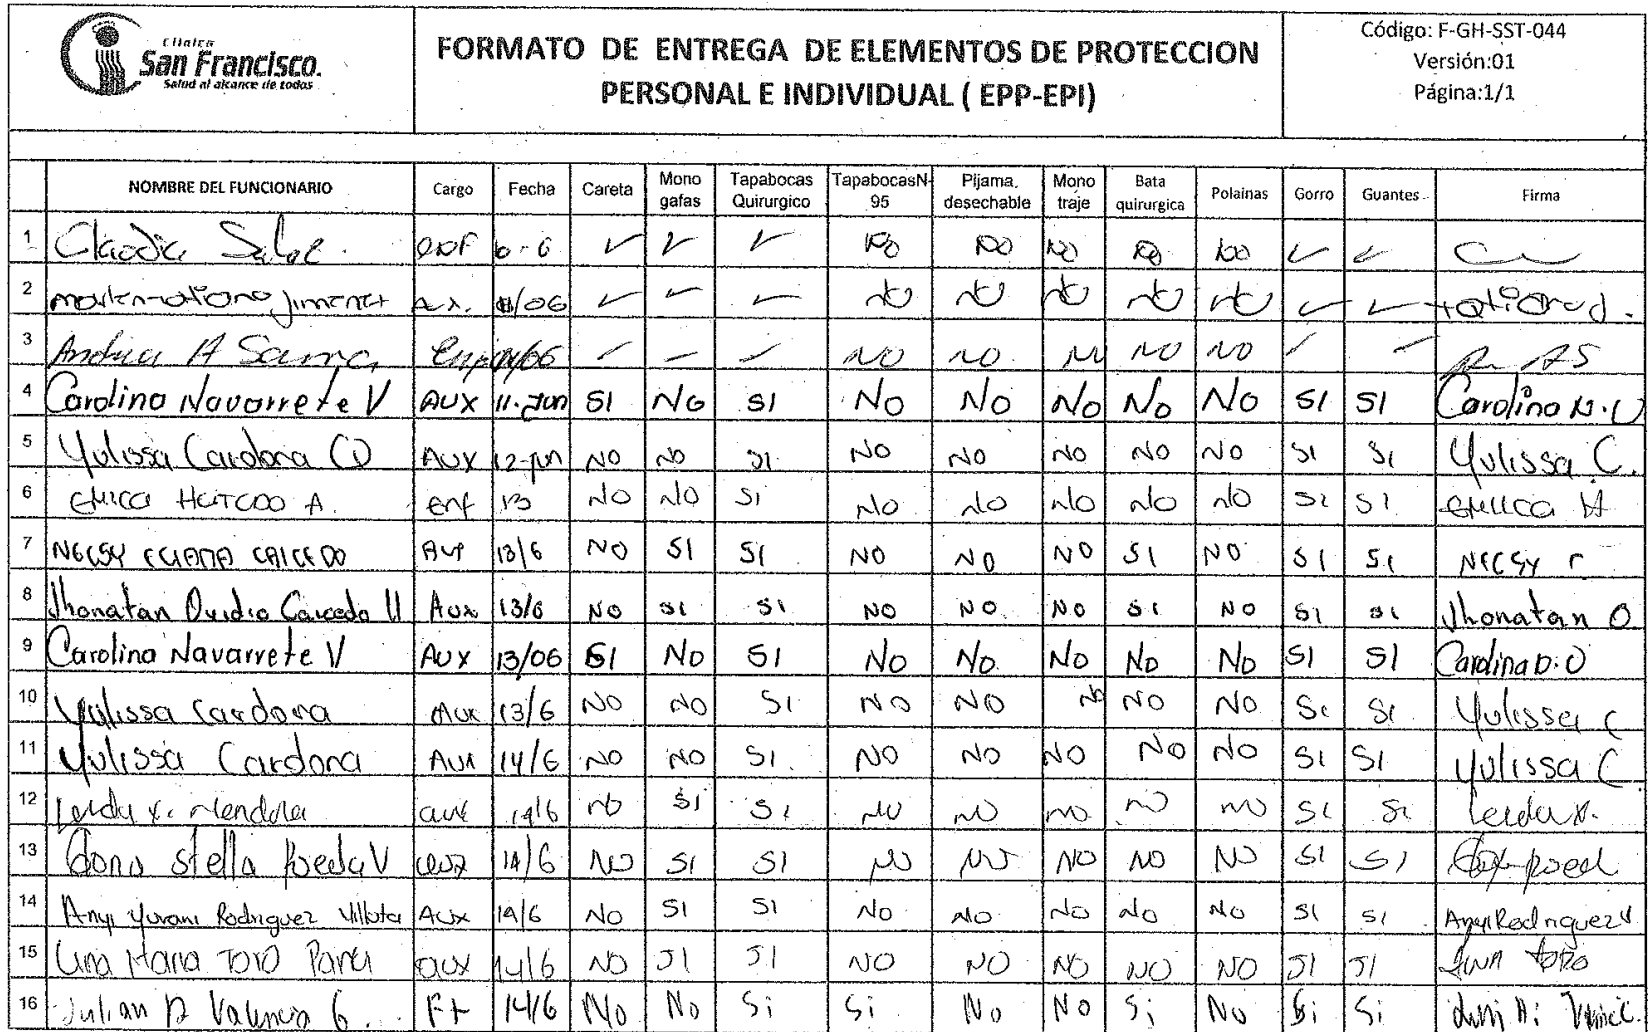 Clínica
San Francisco.
Salud al alcance de todos
FORMATO DE ENTREGA DE ELEMENTOS DE PROTECCION
PERSONAL E INDIVIDUAL ( EPP-EPI)
Código: F-GH-SST-044
Versión:01
Página:1/1
NOMBRE DEL FUNCIONARIO Cargo Fecha Careta Mono gafas Tapabocas Quirurgico TapabocasN-95 Pijama desechable Mono traje Bata quirurgica Polainas Gorro Guantes Firma
1 Claudia enf 6-6 ✓ ✓ ✓ No No No No No ✓ ✓
2 Jimenez Aux. /06 ✓ ✓ ✓ No No No No No ✓ ✓
3 Andrea A /06 NO NO NO NO NO
4 Carolina Navarrete V AUX 11-Jun SI No SI No No No No No SI SI Carolina N.V
5 Yulissa Cardona AUX 12-jun NO NO SI NO NO NO NO NO SI SI Yulissa C.
6 A. enf 13 NO NO SI NO NO NO NO NO SI SI
7 CAICEDO Aux 13/6 NO SI SI NO NO NO SI NO SI SI
8 Jhonatan Ovidio Caicedo Aux 13/6 NO SI SI NO NO NO SI NO SI SI Jhonatan O
9 Carolina Navarrete V AUX 13/06 SI No SI No No No No No SI SI Carolina N.V
10 Yulissa Cardona Aux 13/6 NO NO SI NO NO No NO NO Si Si Yulissa C
11 Yulissa Cardona Aux 14/6 NO NO SI NO NO NO NO NO SI SI Yulissa C
12 Leidy aux 14/6 no SI SI NO NO no no no SI Si
13 Stella V aux 14/6 NO SI SI NO NO NO NO NO SI SI
14 Anyi Yurani Rodriguez Villota Aux 14/6 NO SI SI NO NO NO NO NO SI SI Anyi Rodriguez V
15 Lina Maria Toro aux 14/6 NO SI SI NO NO NO NO NO SI SI Lina toro
16 Julian D Valencia G. Ft 14/6 No No Si Si No No Si No Si Si